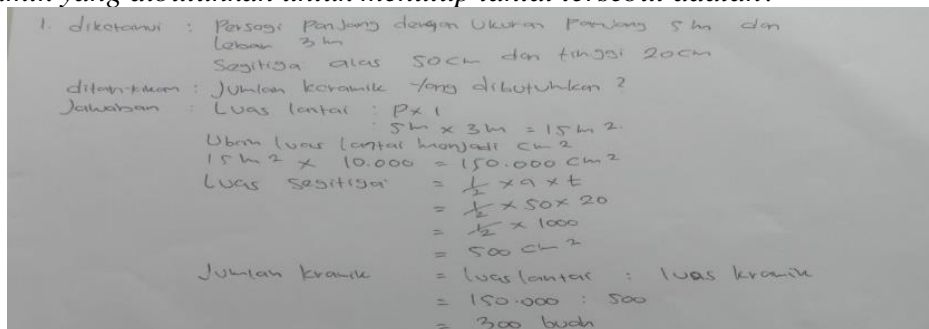 yang dibutuhkan untuk menutup lantai tersebut adalah?
1. diketahui : Persegi Panjang dengan Ukuran Panjang 5 m dan
Lebar 3 m
Segitiga alas 50 cm dan tinggi 20 cm
ditanyakan : Jumlah keramik yang dibutuhkan ?
Jawaban : Luas lantai : P x l
: 5 m x 3 m = 15 m 2.
Ubah luas lantai menjadi cm 2
15 m 2 x 10.000 = 150.000 cm 2
Luas segitiga = 1/2 x a x t
= 1/2 x 50 x 20
= 1/2 x 1000
= 500 cm 2
Jumlah kramik = luas lantai : luas kramik
= 150.000 : 500
= 300 buah